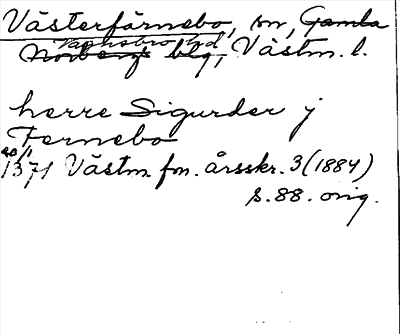 Västerfärnebo, sn, Gamla
Vagnsbro hd
Norbergs blg, Västm. l.
herre Sigurder j
Fernebo
20/1
1371 Västm fm. årsskr. 3 (1884)
s. 88. orig.